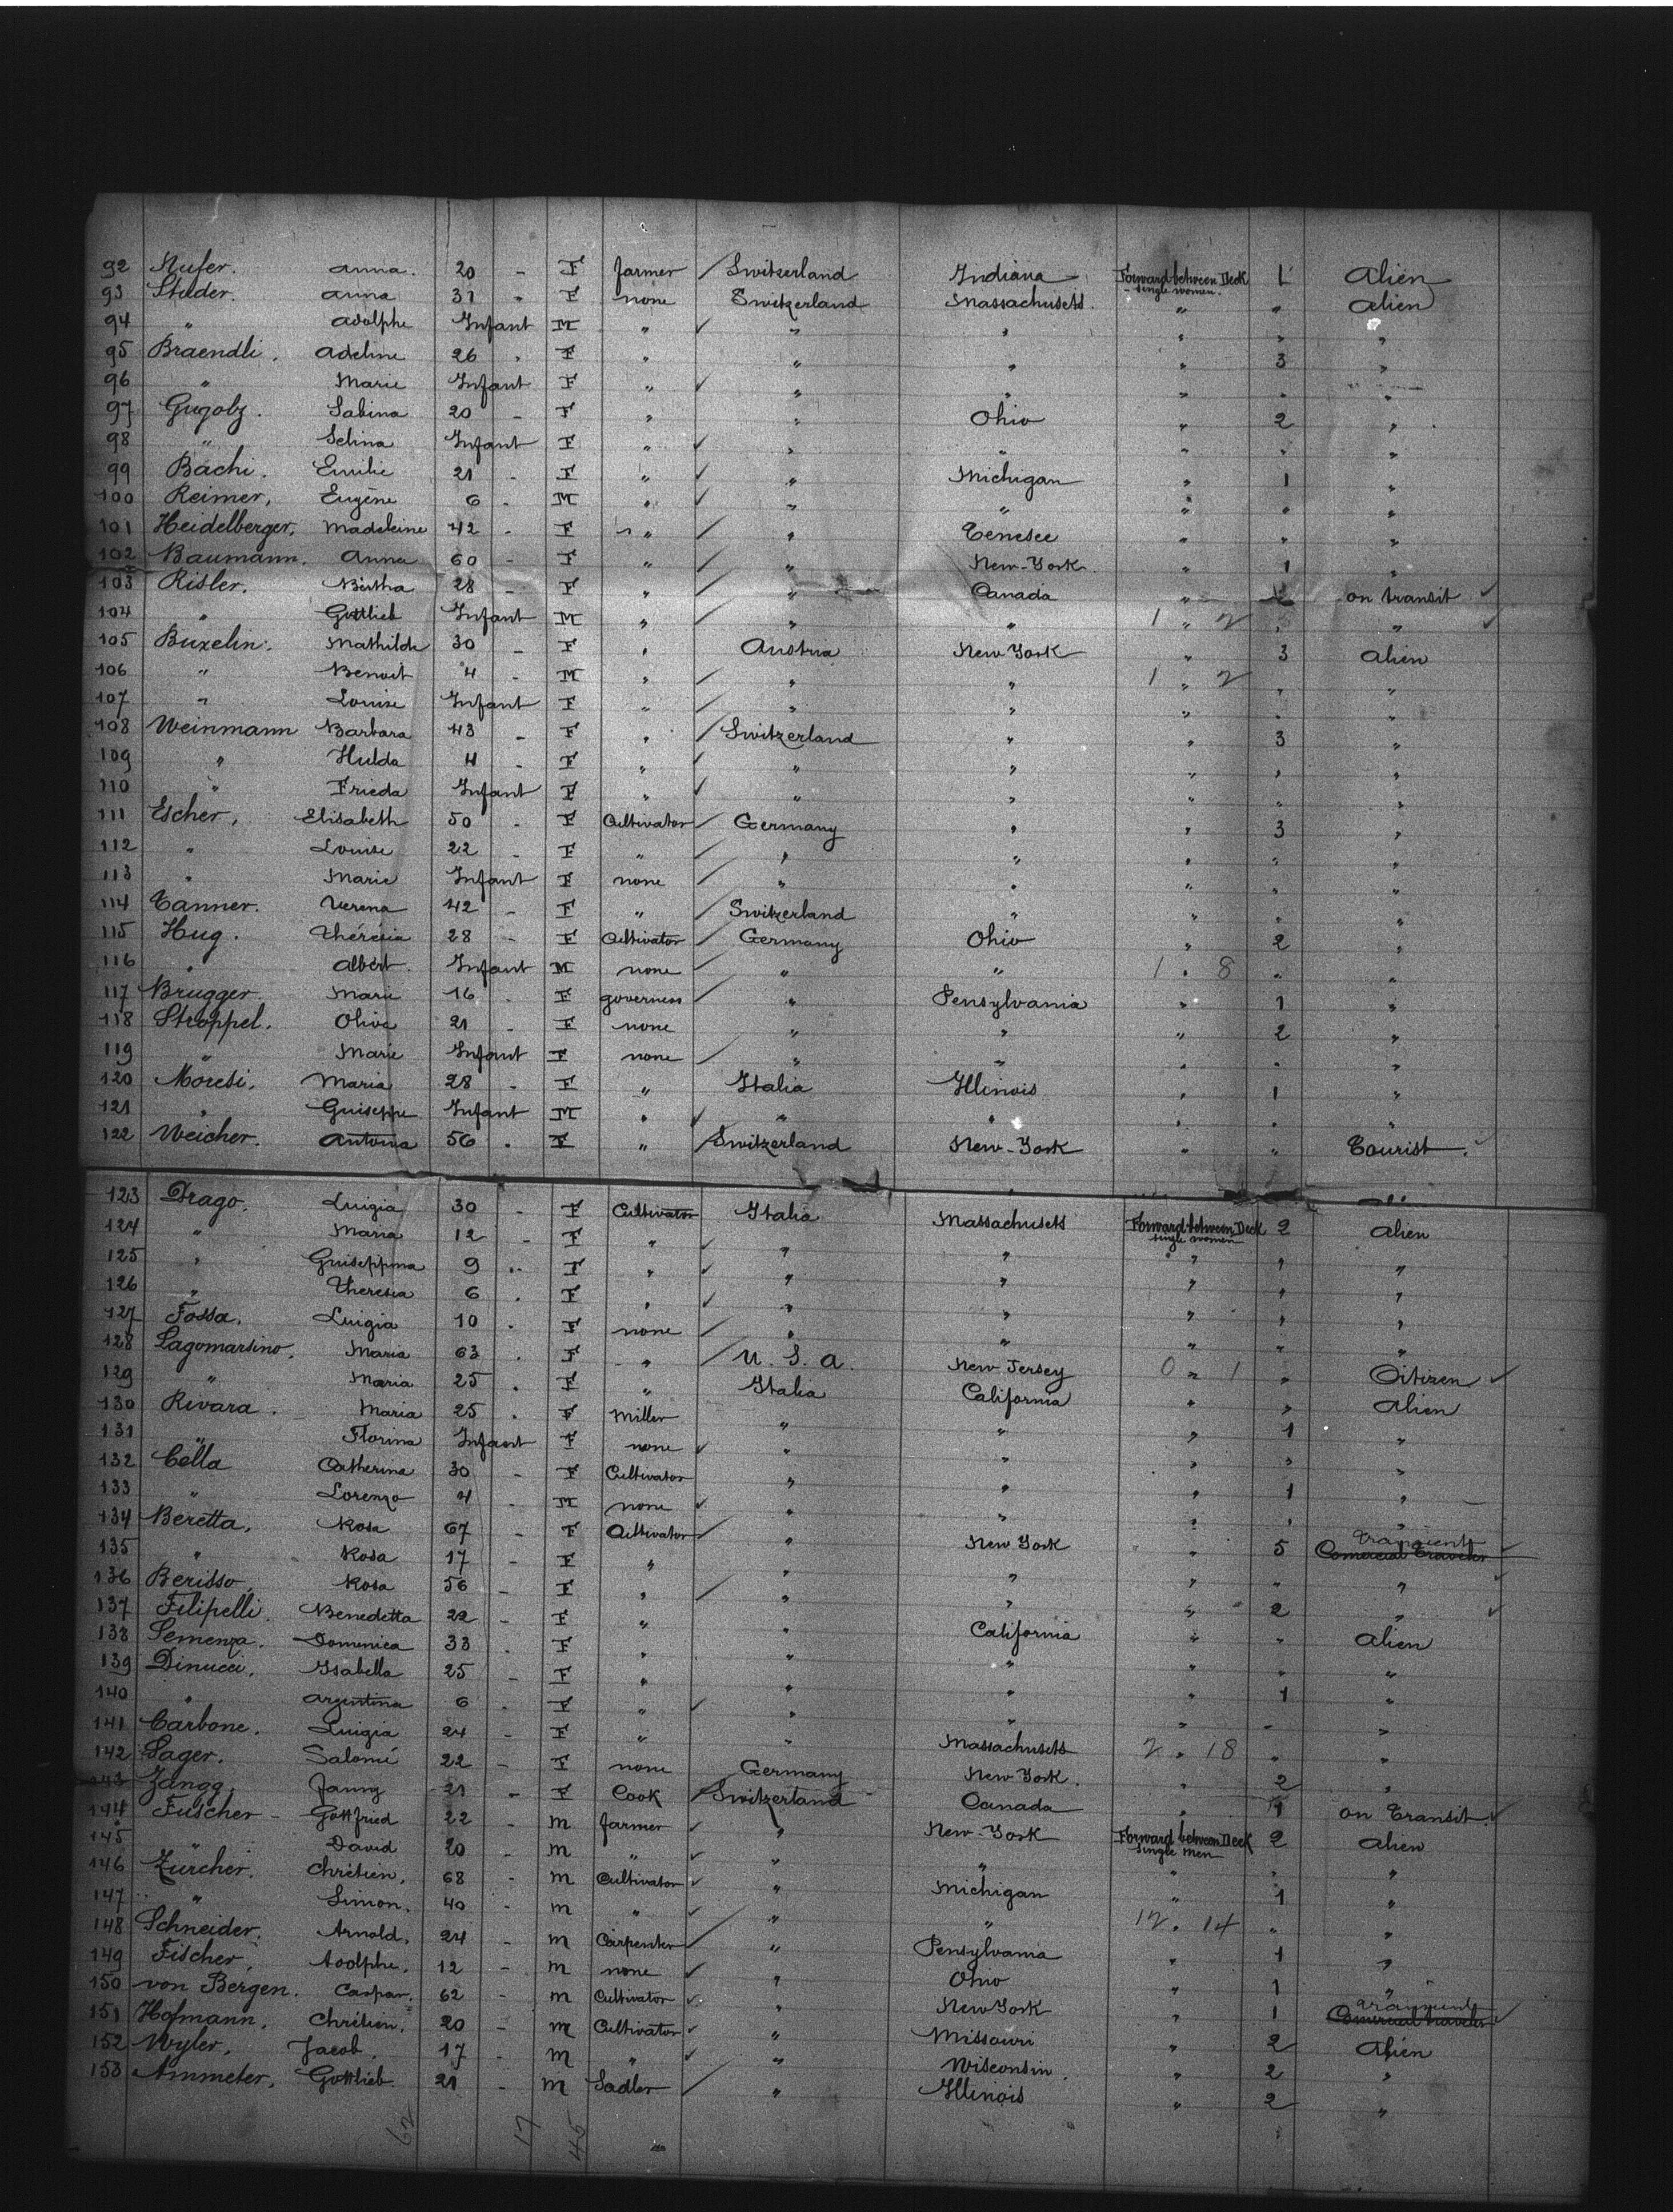 92 Nufer. Anna. 20 - F farmer Switzerland Indiana Forward between Deck single women. 1 Alien
93 Studer. Anna 31 " F none Switzerland Massachusets. " " Alien
94 " Adolphe Infant M " " " " " "
95 Braendli. Adeline 26 " F " " " " 3 "
96 " Marie Infant F " " " " " "
97 Gugolz. Sabina 20 - F " " Ohio " 2 "
98 " Selina Infant F " " " " " "
99 Bachi. Emilie 21 - F " " Michigan " 1 "
100 Reimer, Eugène 6 - M " " " " " "
101 Heidelberger, Madeleine 42 - F " " Tenesee " " "
102 Baumann. Anna 60 - F " " New-York. " 1 "
103 Risler. Bertha 28 - F " " Canada " on transit
104 " Gottlieb Infant M " " " 1 " 2 " "
105 Buxelin. Mathilde 30 - F " Austria New York " 3 Alien
106 " Benoit 4 - M " " " 1 " 2 " "
107 " Louise Infant F " " " " " "
108 Weinmann Barbara 43 - F " Switzerland " " 3 "
109 " Hulda 4 - F " " " " " "
110 " Frieda Infant F " " " " " "
111 Escher, Elisabeth 50 - F Cultivator Germany " " 3 "
112 " Louise 22 - F " " " " " "
113 " Marie Infant F none " " " " "
114 Tanner. Verena 42 - F " Switzerland " " " "
115 Hug. Thérésia 28 - F Cultivator Germany Ohio " 2 "
116 " Albert. Infant M none " " 1 " 8 " "
117 Brugger Marie 16 - F governess " Pensylvania " 1 "
118 Stroppel. Olive 21 - F none " " " 2 "
119 " Marie Infant F none " " " " "
120 Moresi. Maria 28 - F " Italia Illinois " 1 "
121 " Guiseppe Infant M " " " " " "
122 Weicher. Antonia 56 - F " Switzerland New-York " " Tourist.
123 Drago. Luigia 30 - F Cultivator Italia Massachusets Forward between Deck single women 2 Alien
124 " Maria 12 - F " " " " " "
125 " Guiseppina 9 - F " " " " " "
126 " Theresia 6 - F " " " " " "
127 Fossa. Luigia 10 - F none " " " " "
128 Lagomarsino. Maria 63 - F " U. S. A. New-Jersey 0 " 1 " Citizen
129 " Maria 25 - F " Italia California " " Alien
130 Rivara. Maria 25 - F Miller " " " 1 "
131 " Florina Infant F none " " " " "
132 Cella Catherina 30 - F Cultivator " " " 1 "
133 " Lorenzo 4 - M none " " " " "
134 Beretta, Rosa 67 - F Cultivator " New York " 5 transient Comercial Traveler
135 " Rosa 17 - F " " " " " "
136 Berisso Rosa 56 - F " " " " 2 "
137 Filipelli. Benedetta 22 - F " " California " " Alien
138 Semenza. Domenica 33 - F " " " " " "
139 Dinucci. Ysabella 25 - F " " " " 1 "
140 " Argentina 6 - F " " " " " "
141 Carbone. Luigia 24 - F " " Massachusets 2 " 18 " "
142 Sager. Salomé 22 - F none Germany New York. " 2 "
143 Zangg. Fanny 21 - F Cook Switzerland Canada " 1 on Transit.
144 Fuscher - Gottfried 22 - m farmer " New-York Forward between Deck single men 2 Alien
145 " David 20 - m " " " " " "
146 Zürcher. Chrétien. 68 - m Cultivator " Michigan " 1 "
147 " Simon. 40 - m " " " 12 " 14 " "
148 Schneider. Arnold. 24 - m Carpenter " Pensylvania " 1 "
149 Fischer, Adolphe. 12 - m none " Ohio " 1 "
150 von Bergen. Caspar. 62 - m Cultivator " New York " 1 transient Comercial traveler
151 Hofmann, Chrétien. 20 - m Cultivator " Missouri " 2 Alien
152 Wyler, Jacob. 17 - m " " Wisconsin. " 2 "
153 Ammeter, Gottlieb. 21 - m Sadler " Illinois " 2 "
62 17 45